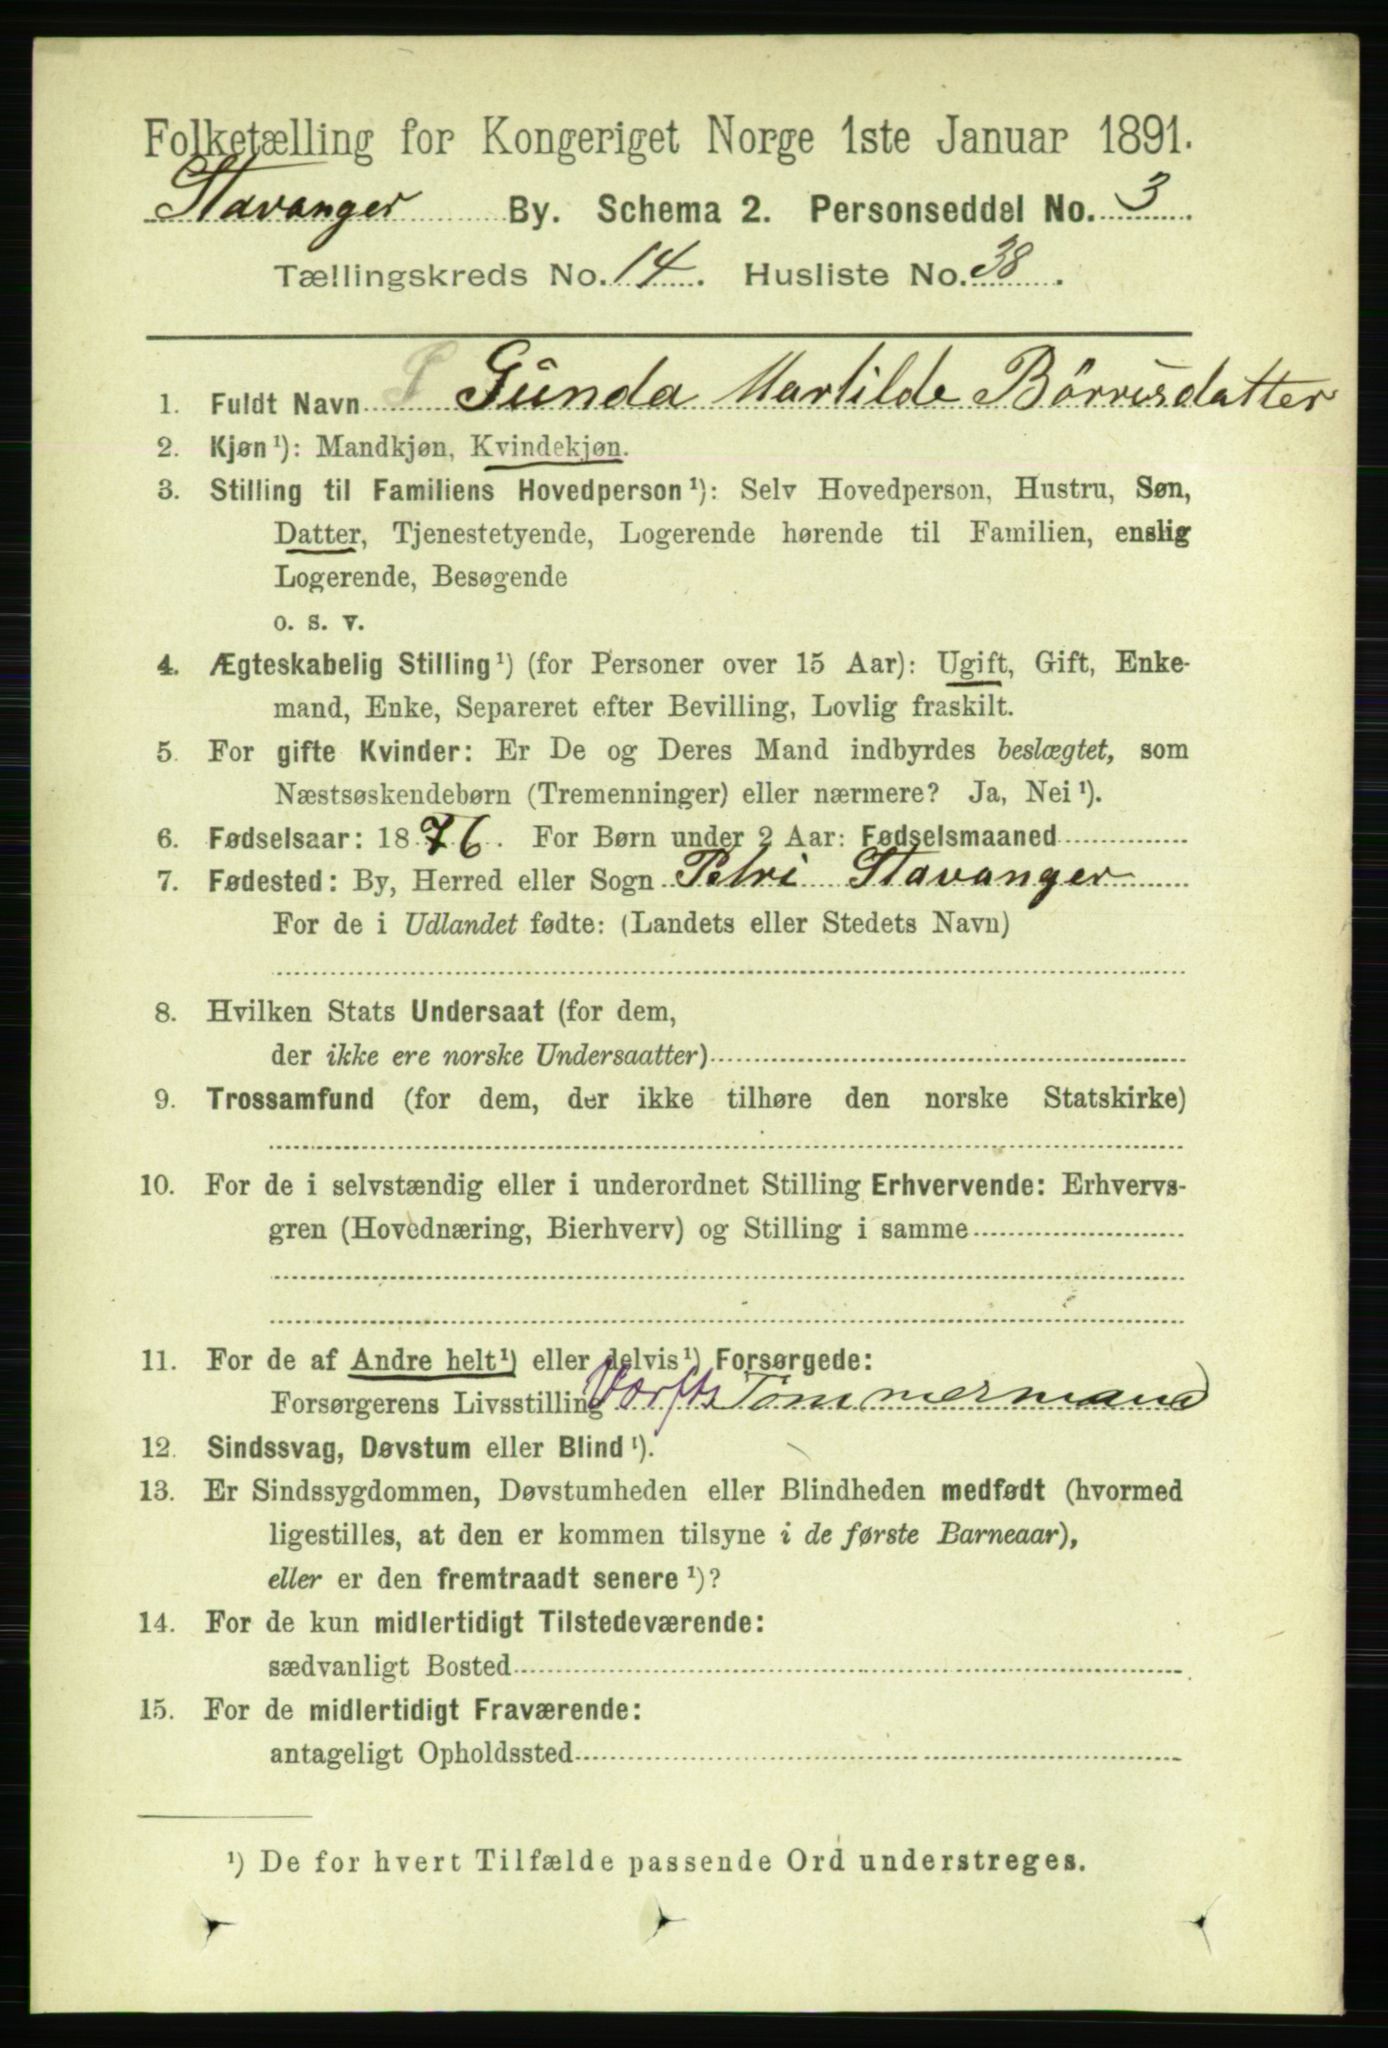 Folketælling for Kongeriget Norge 1ste Januar 1891.
Stavanger By. Schema 2. Personseddel No. 3
Tællingskreds No. 14. Husliste No. 38.
1. Fuldt Navn Gunda Martilde Börresdatter
2. Kjøn¹): Mandkjøn, Kvindekjøn.
3. Stilling til Familiens Hovedperson¹): Selv Hovedperson, Hustru, Søn,
Datter, Tjenestetyende, Logerende hørende til Familien, enslig
Logerende, Besøgende
o. s. v.
4. Ægteskabelig Stilling¹) (for Personer over 15 Aar): Ugift, Gift, Enke-
mand, Enke, Separeret efter Bevilling, Lovlig fraskilt.
5. For gifte Kvinder: Er De og Deres Mand indbyrdes beslægtet, som
Næstsøskendebørn (Tremenninger) eller nærmere? Ja, Nei¹).
6. Fødselsaar: 1876. For Børn under 2 Aar: Fødselsmaaned
7. Fødested: By, Herred eller Sogn Petri Stavanger
For de i Udlandet fødte: (Landets eller Stedets Navn)
8. Hvilken Stats Undersaat (for dem,
der ikke ere norske Undersaatter)
9. Trossamfund (for dem, der ikke tilhøre den norske Statskirke)
10. For de i selvstændig eller i underordnet Stilling Erhvervende: Erhvervs-
gren (Hovednæring, Bierhverv) og Stilling i samme
11. For de af Andre helt¹) eller delvis¹) Forsørgede:
Forsørgerens Livsstilling Værfts Tömmermand
12. Sindssvag, Døvstum eller Blind¹).
13. Er Sindssygdommen, Døvstumheden eller Blindheden medfødt (hvormed
ligestilles, at den er kommen tilsyne i de første Barneaar),
eller er den fremtraadt senere¹)?
14. For de kun midlertidigt Tilstedeværende:
sædvanligt Bosted
15. For de midlertidigt Fraværende:
antageligt Opholdssted
¹) De for hvert Tilfælde passende Ord understreges.